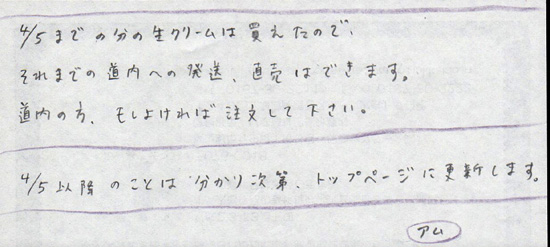 4/5までの分の生クリームは買えたので、
それまでの道内への発送、直売はできます。
道内の方、もしよければ注文して下さい。
4/5以降のことは分かり次第、トップページに更新します。
アム